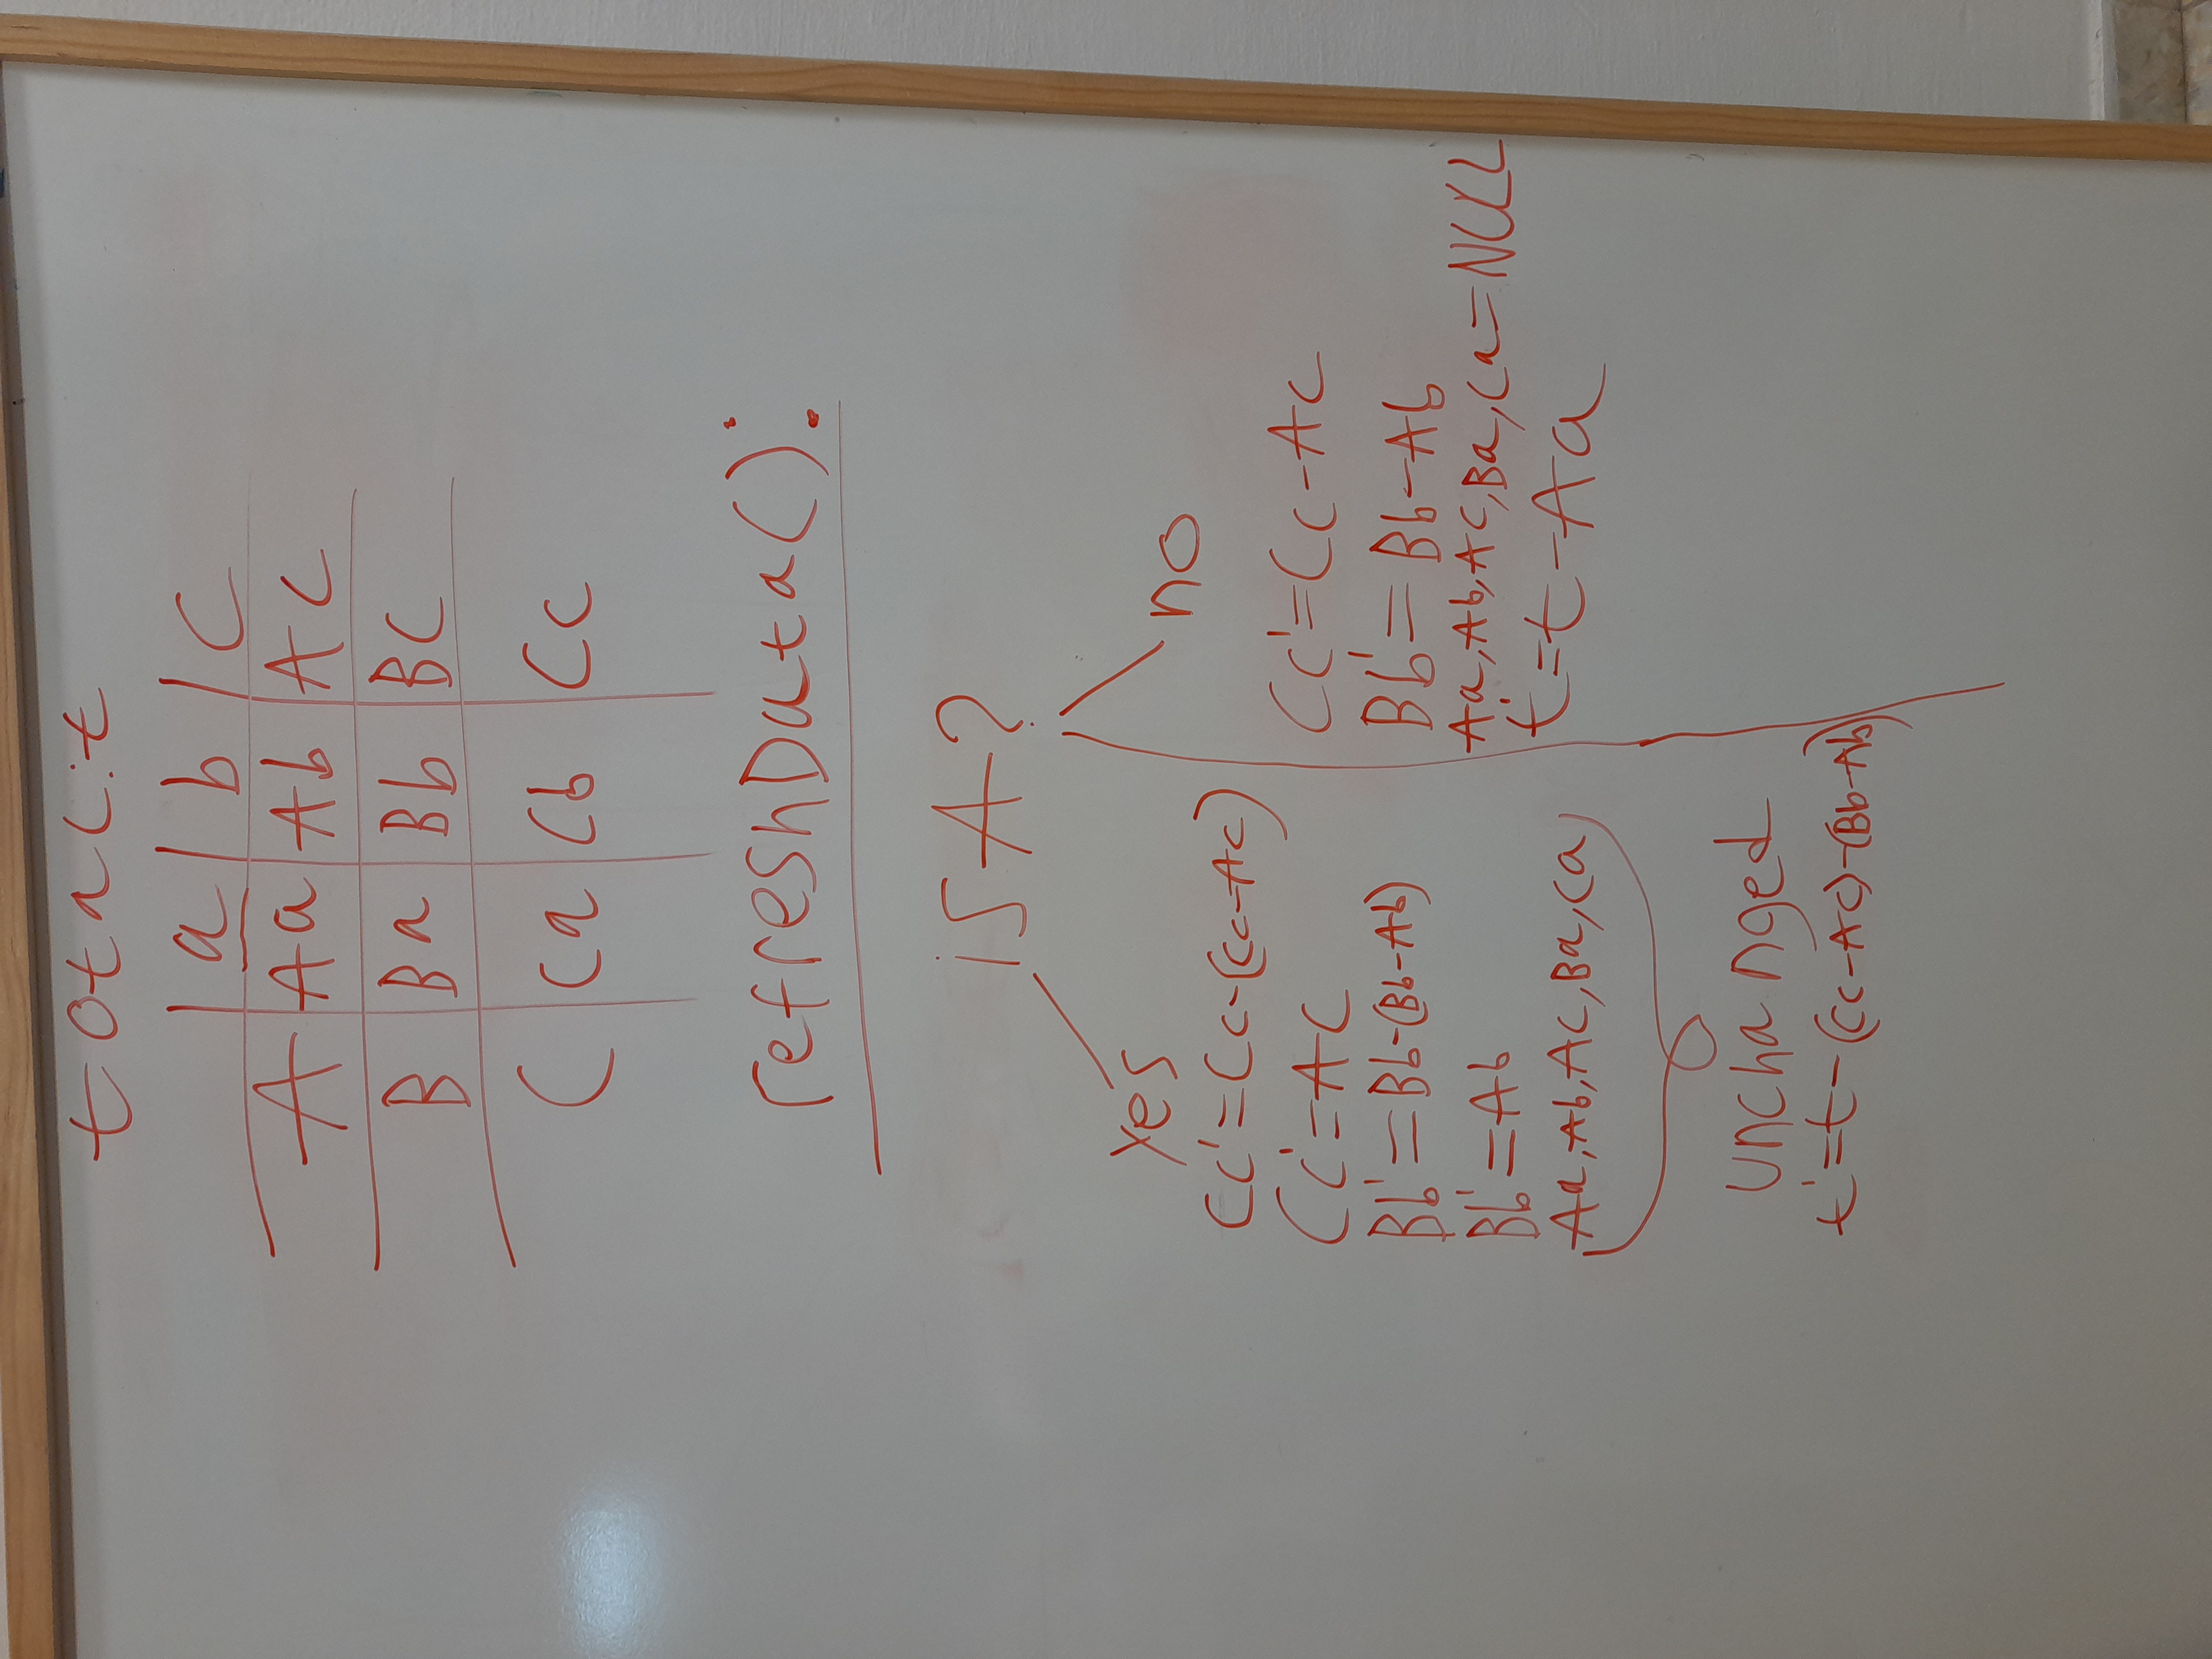 total:t
a b c
A Aa Ab Ac
B Ba Bb Bc
C Ca Cb Cc
refreshData():
is A?
yes
no
Cc'=Cc-(Cc-Ac)
Cc'=Ac
Bb'=Bb-(Bb-Ab)
Bb'=Ab
Aa,Ab,Ac,Ba,Ca
unchanged
t'=t-(Cc-Ac)-(Bb-Ab)
Cc'=Cc-Ac
Bb'=Bb-Ab
Aa,Ab,Ac,Ba,Ca=NULL
t'=t-Aa